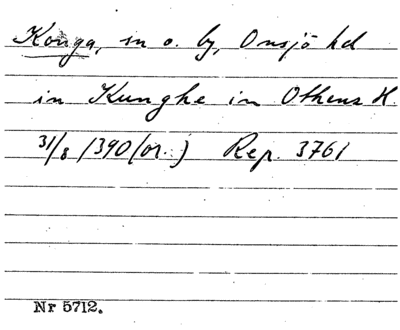 Konga, sn o. by, Onsjö hd
in Kunghe in Othens H.
31/8 1390 (or.) Rep. 3761
Nr 5712.